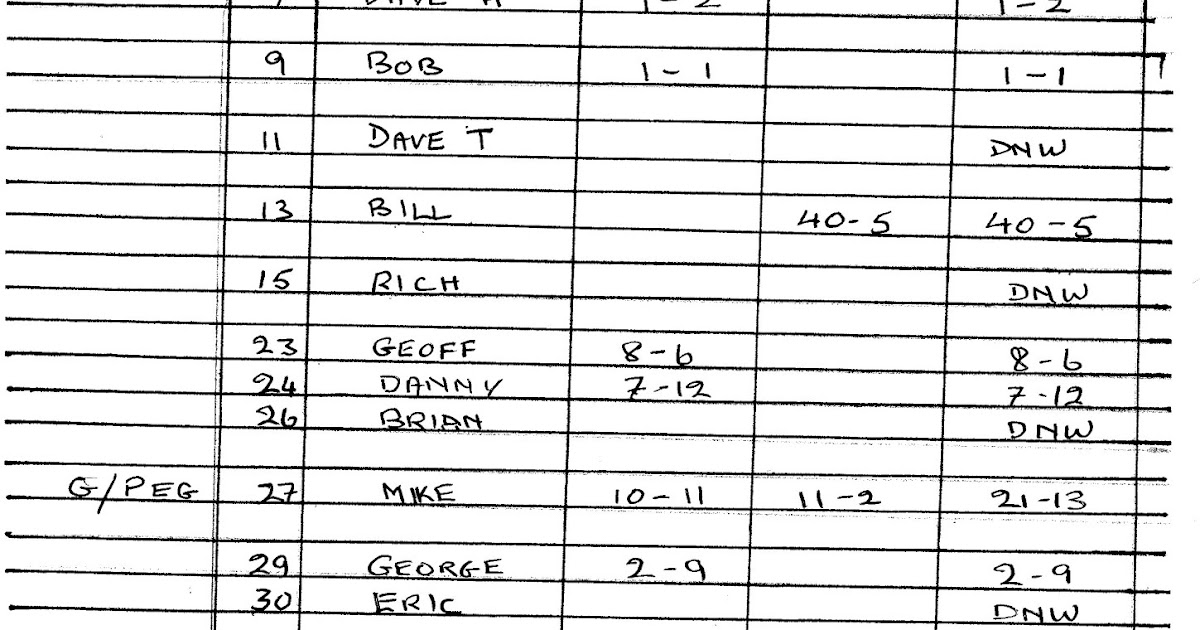 DAVE H 1-2 1-2
9 BOB 1-1 1-1
11 DAVE T DNW
13 BILL 40-5 40-5
15 RICH DNW
23 GEOFF 8-6 8-6
24 DANNY 7-12 7-12
26 BRIAN DNW
G/PEG 27 MIKE 10-11 11-2 21-13
29 GEORGE 2-9 2-9
30 ERIC DNW